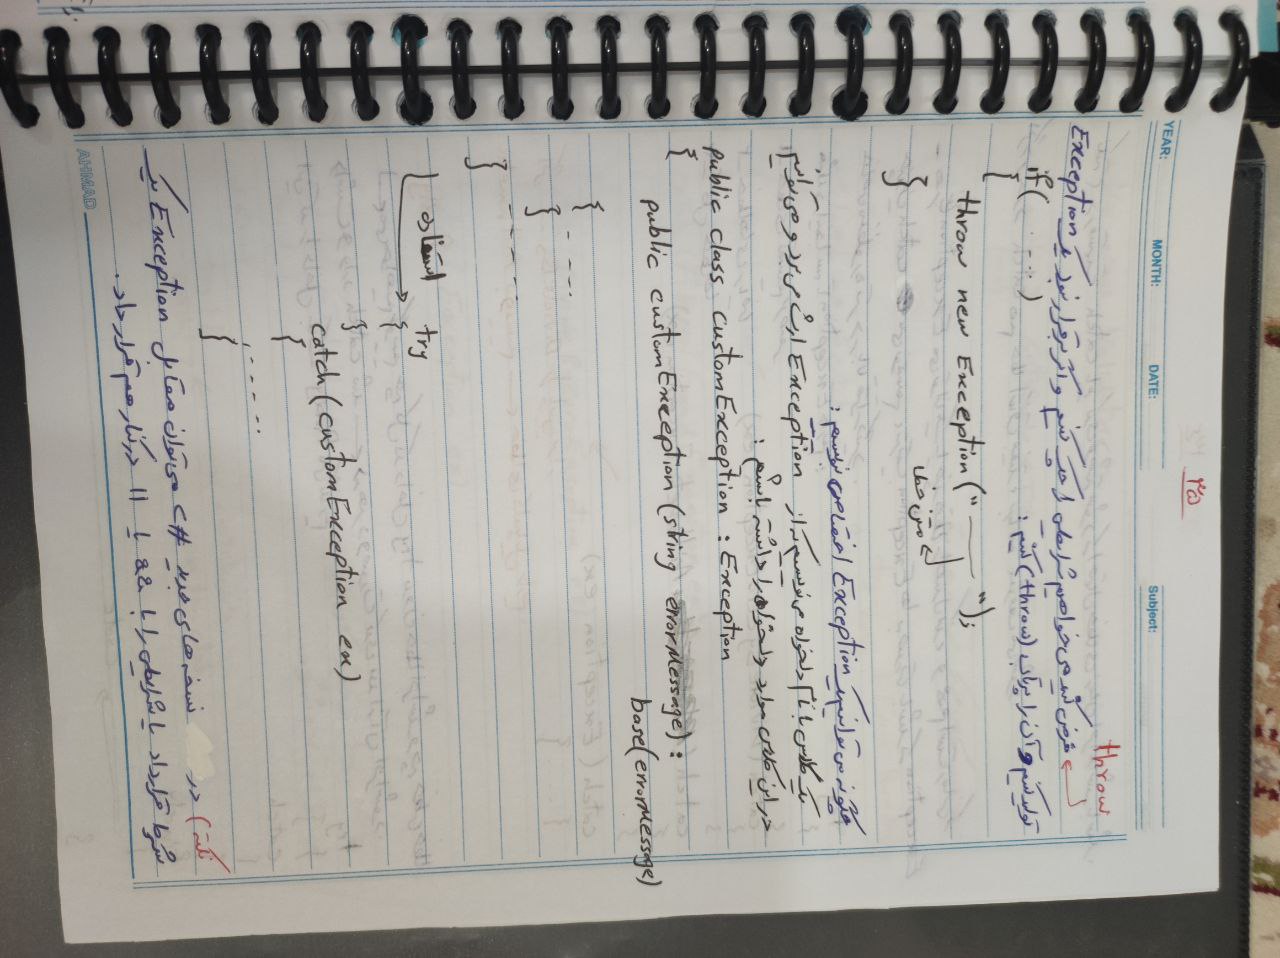 ۳۵
YEAR: MONTH: DATE: Subject:
throw
فرض کنید می خواهیم شرایطی را چک کنیم و اگر برقرار نبود یک Exception
تولید کنیم و آن را پرتاب (throw) کنیم :
if( ...... )
{
throw new Exception("———");
متن خطا
}
چگونه می توانیم یک Exception اختصاصی بنویسیم :
یک کلاس با نام دلخواه می نویسیم که از Exception ارث می برد و می توانیم
در این کلاس موارد دلخواه را داشته باشیم :
public class customException : Exception
{
public customException (string errorMessage) :
base(errorMessage)
{
.....
}
......
}
استفاده
try
{
}
catch (customException ex)
{
......
}
نکته) در نسخه های جدید C# می توان مقابل Exception یک
شرط قرارداد یا شرایطی را با && یا || در کنار هم قرار داد.
AHMAD